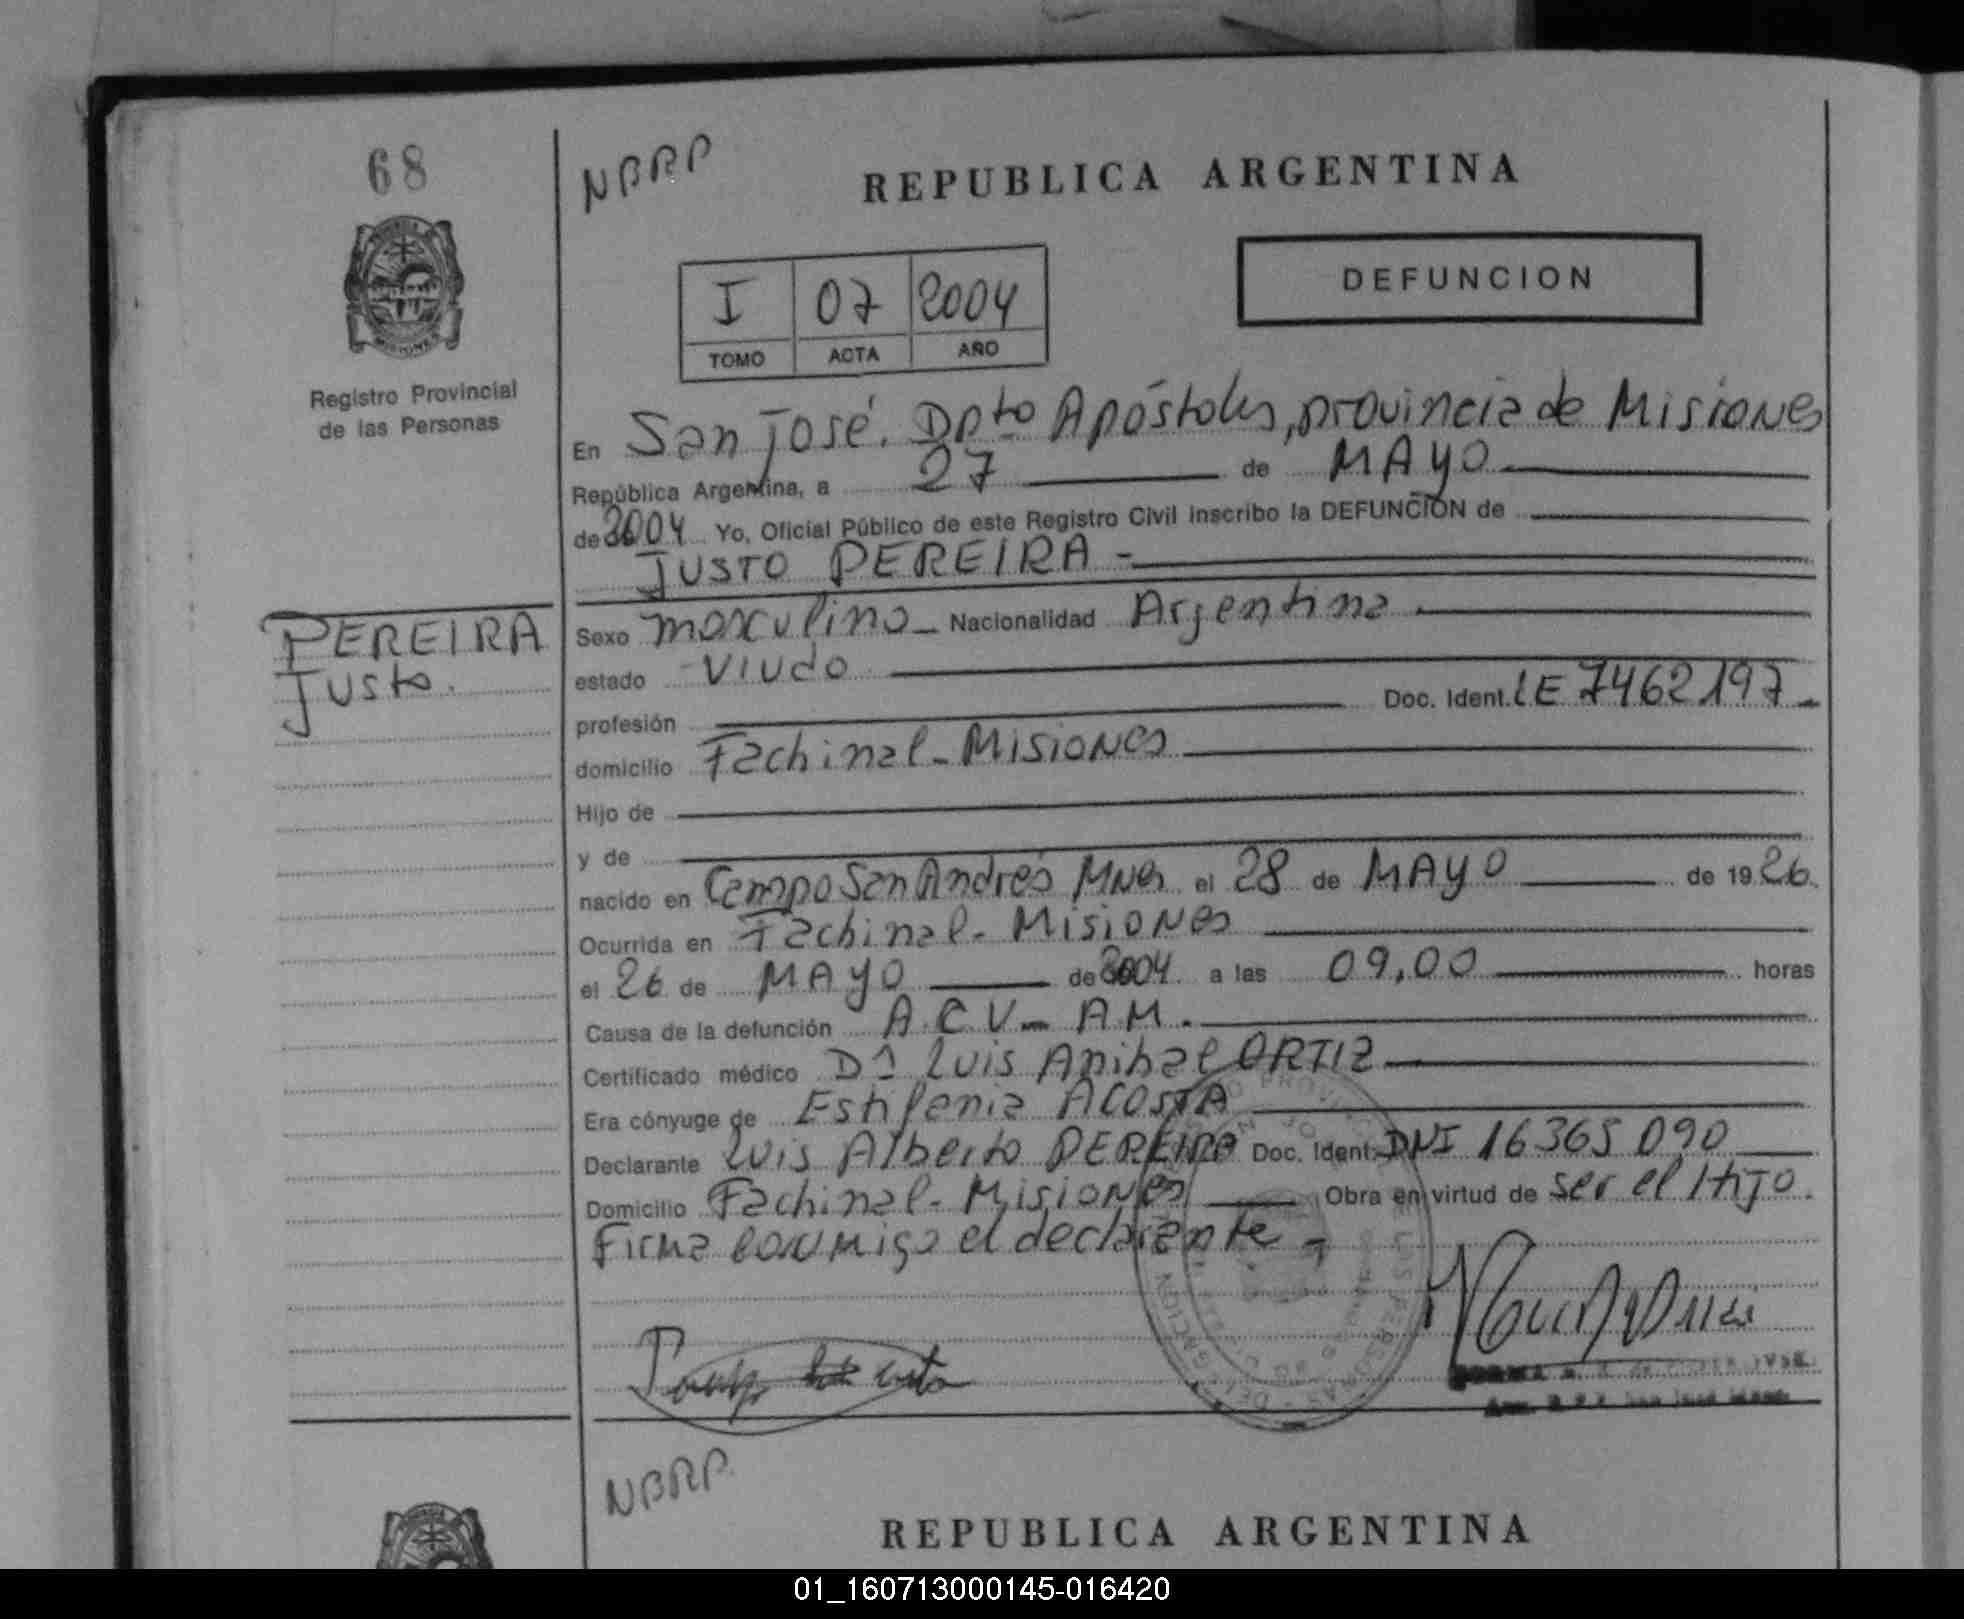 68
NBRP
REPUBLICA ARGENTINA
MISIONES
Registro Provincial
de las Personas
I 07 2004
TOMO ACTA AÑO
DEFUNCION
En San José. Dpto Apóstoles, provincia de Misiones
República Argentina, a 27 de MAYO
de 2004 Yo, Oficial Público de este Registro Civil inscribo la DEFUNCION de
JUSTO PEREIRA -
PEREIRA
Justo.
Sexo masculino - Nacionalidad Argentina
estado viudo
profesión Doc. Ident. LE 7462197
domicilio Fachinal - Misiones
Hijo de
y de
nacido en Campo San Andrés Mnes el 28 de MAYO de 1926.
Ocurrida en Fachinal - Misiones
el 26 de MAYO de 2004 a las 09,00 horas
Causa de la defunción A.C.V - A.M.
Certificado médico Dr Luis Anibal ORTIZ
Era cónyuge de Estifania ACOSTA
Declarante Luis Alberto PEREIRA Doc. Ident. DNI 16365090
Domicilio Fachinal - Misiones Obra en virtud de ser el Hijo.
Firma conmigo el declarante -
NBRP.
REPUBLICA ARGENTINA
01_160713000145-016420